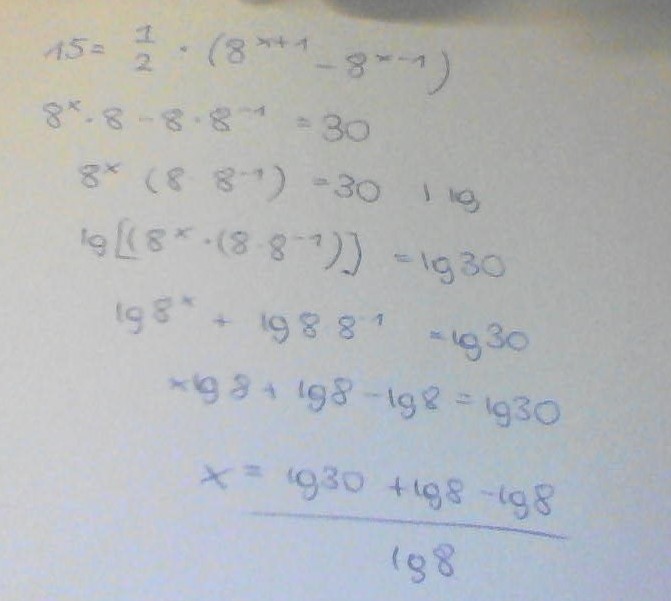 15 = 1/2 · (8^(x+1) - 8^(x-1))
8^x · 8 - 8 · 8^(-1) = 30
8^x (8 8^(-1)) = 30 | lg
lg[(8^x · (8 8^(-1))] = lg30
lg8^x + lg8 8^(-1) = lg30
xlg8 + lg8 - lg8 = lg30
x = lg30 + lg8 - lg8
lg8